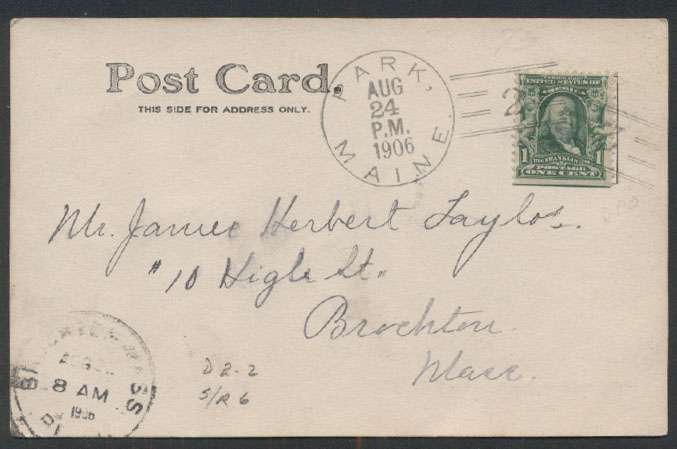 Post Card.
THIS SIDE FOR ADDRESS ONLY.
PARK,
AUG
24
P.M.
1906
MAINE.
UNITED STATES OF
AMERICA
1 FRANKLIN 1
POSTAGE
ONE CENT
Mr. James Herbert Taylor.
#10 High St.
Brockton
Mass.
BROCKTON, MASS
AUG
8 AM
1906
D 2-2
S/R 6
DPO